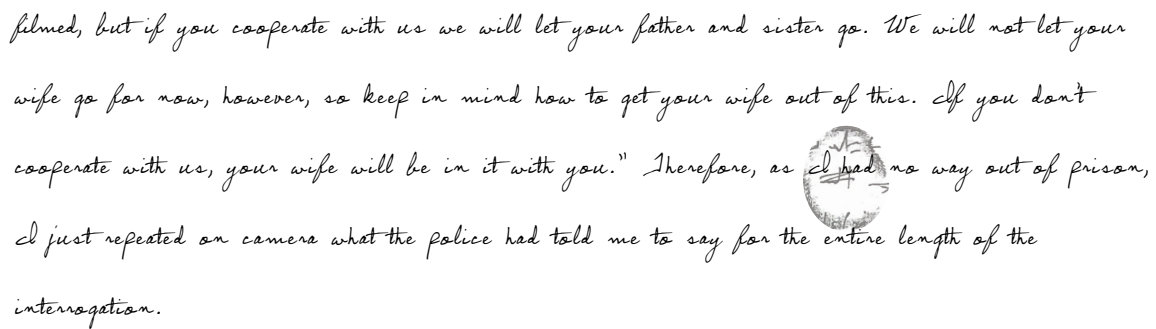 filmed, but if you cooperate with us we will let your father and sister go. We will not let your
wife go for now, however, so keep in mind how to get your wife out of this. If you don't
cooperate with us, your wife will be in it with you." Therefore, as I had no way out of prison,
I just repeated on camera what the police had told me to say for the entire length of the
interrogation.